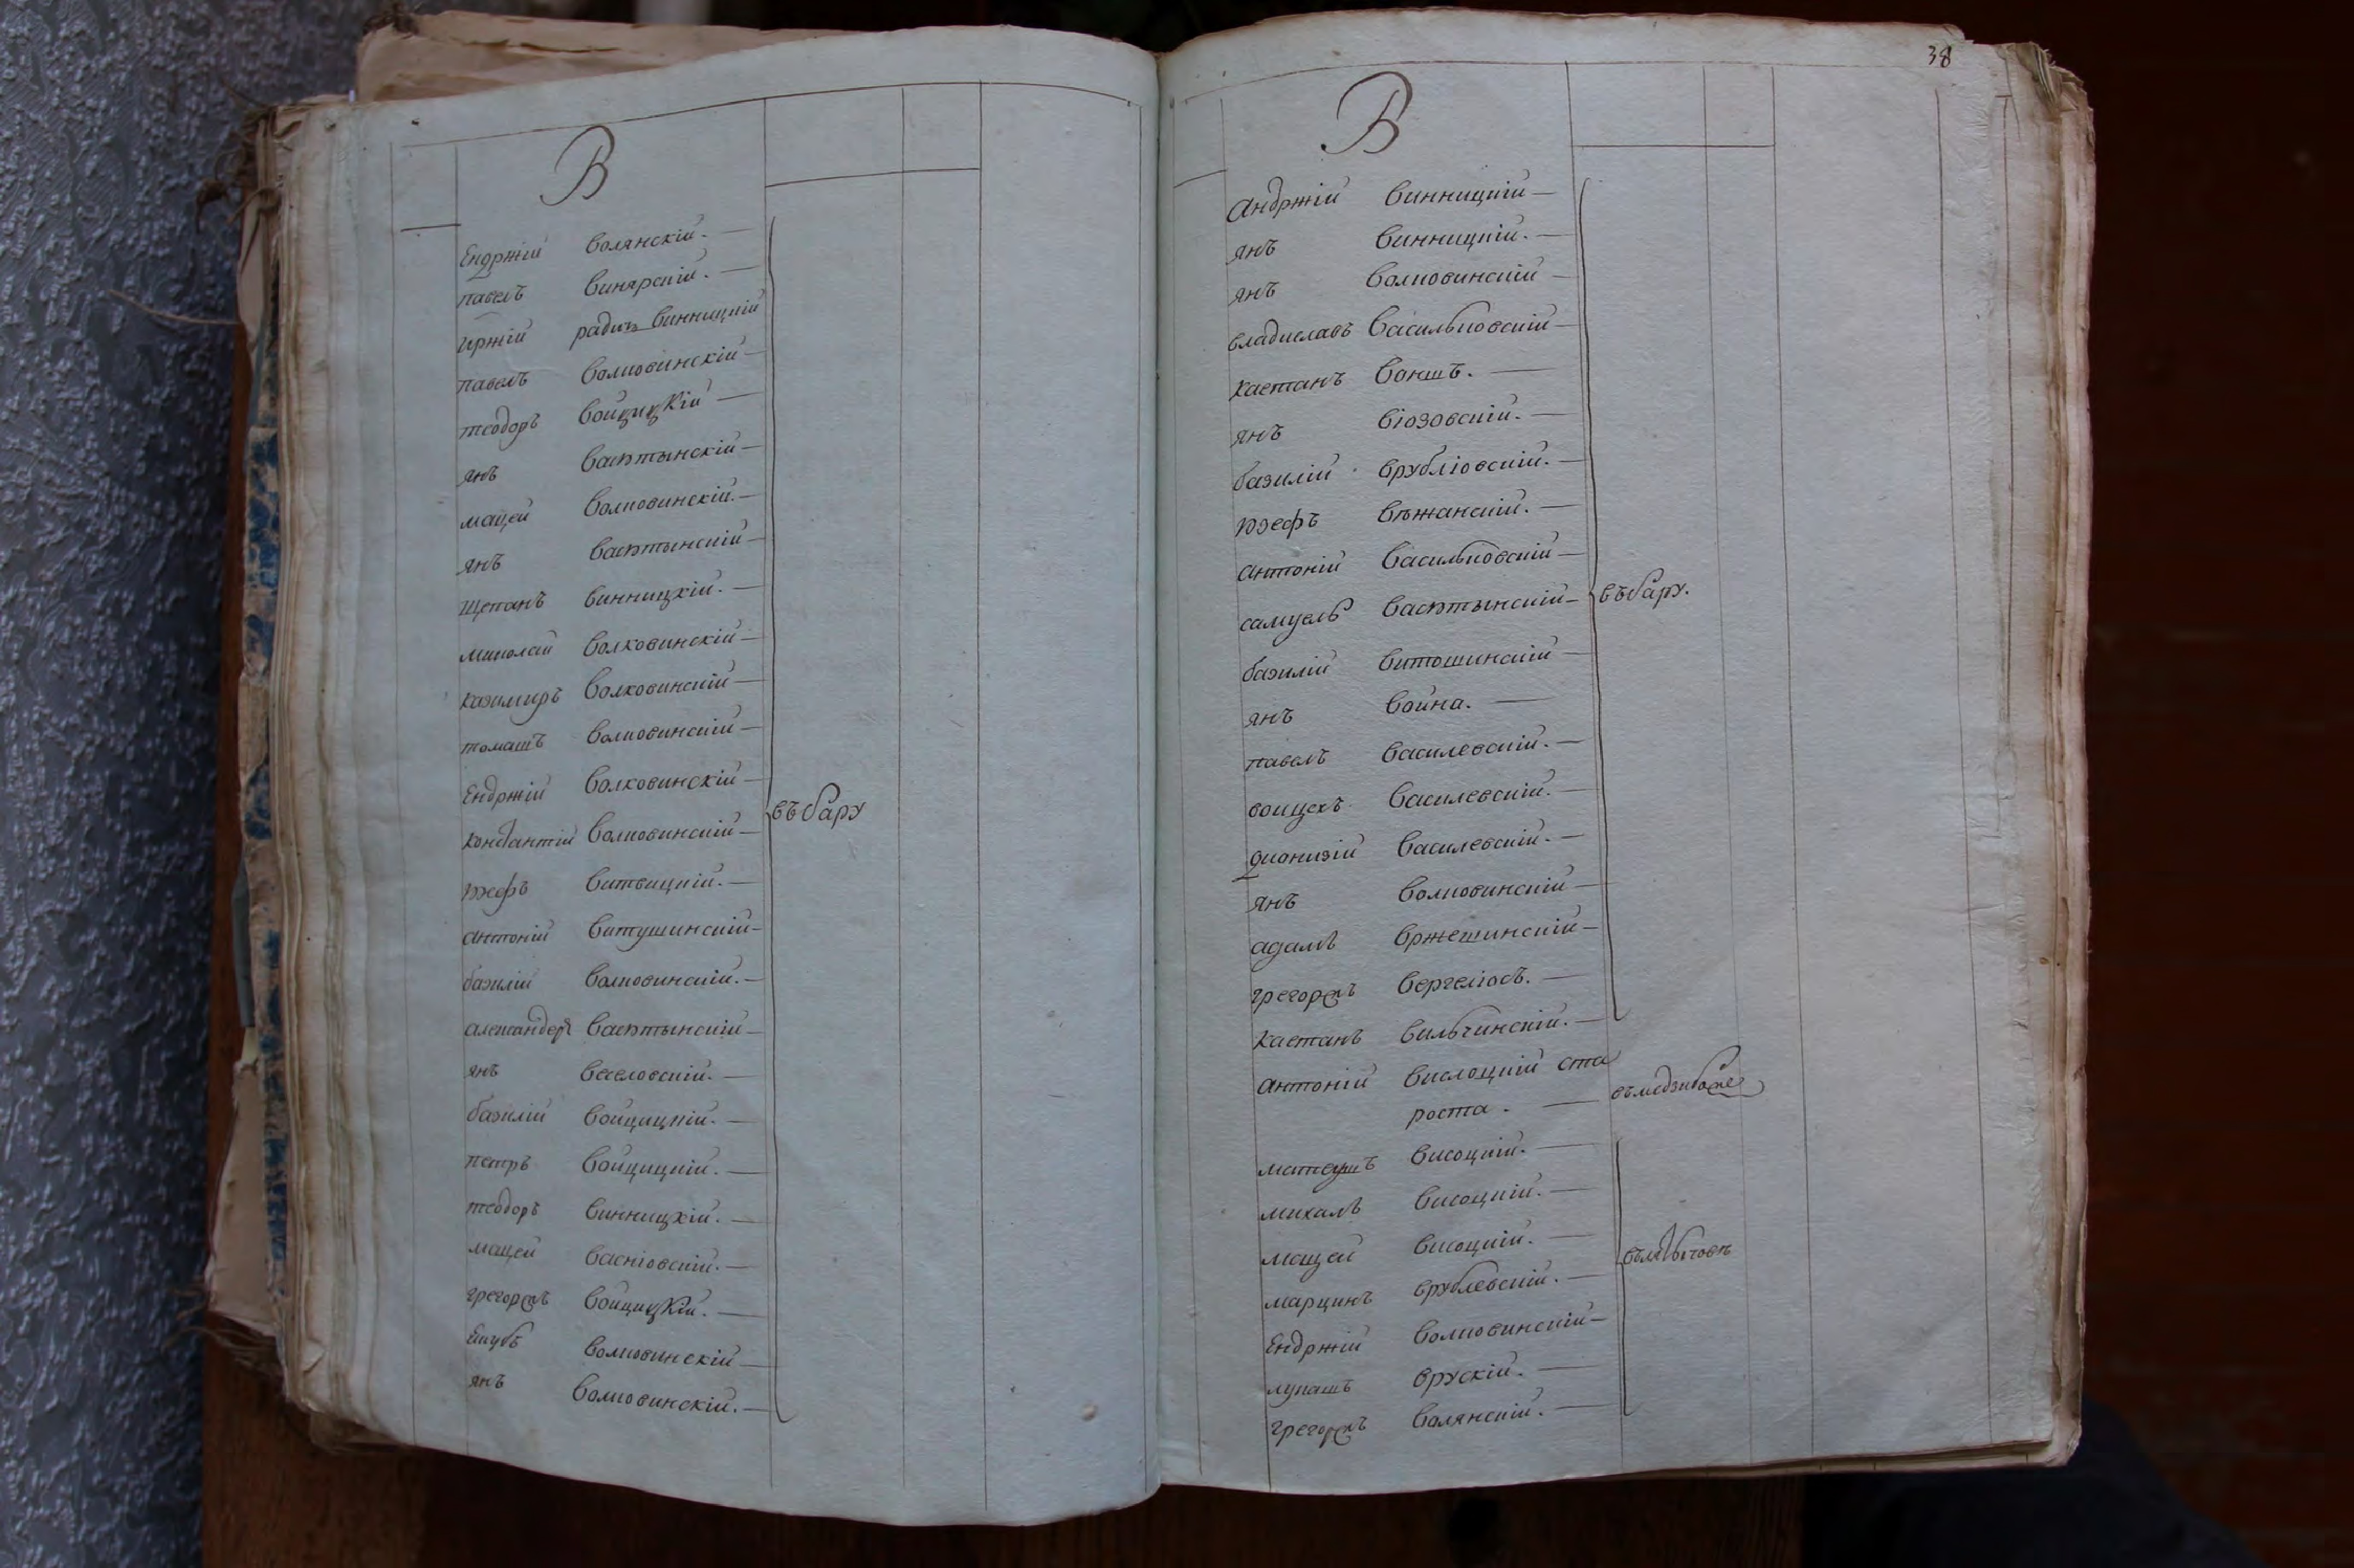 В
Ендржій Волянскій.
павелъ Винярскій.
иржій радичъ Винницкій
павелъ Волковинскій
теодоръ Войцицкій
янъ Васютынскій
мацей Волковинскій.
янъ Васютынскій
щепанъ Винницкій.
миколай Волковинскій
казимиръ Волковинскій
томашъ Волковинскій
Ендржій Волковинскій
въ бару
константій Волковинскій
юзефъ Витвицкій.
антоній Витушинскій
базилій Волковинскій.
александеръ Васютынскій
янъ Веселовскій.
базилій Войцицкій.
петръ Войцицкій.
теодоръ Винницкій.
мацей Васніовскій.
грегоржъ Войцицкій.
Екубъ Волковинскій
янъ Волковинскій.
38
В
Андржій Винницкій
янъ Винницкій.
янъ Волковинскій
владиславъ Васильковскій
каетанъ Воншъ.
янъ Віозовскій.
базилій Врубліовскій.
юзефъ Вѣжанскій.
антоній Васильковскій
самуель Васютынскій
въ бару.
базилій Витошинскій
янъ Война.
павелъ Василевскій.
войцехъ Василевскій.
дионизій Василевскій.
янъ Волковинскій
адамъ Вржешинскій
грегоржъ Вергеліосъ.
каетанъ Вильчинскій.
антоній Вислоцкій ста
роста.
въ медзибоже
матеушъ Висоцкій.
михалъ Висоцкій.
мацей Висоцкій.
марцинъ Врублевскій.
Ендржій Волковинскій
лукашъ Врускій.
грегоржъ Волянскій.